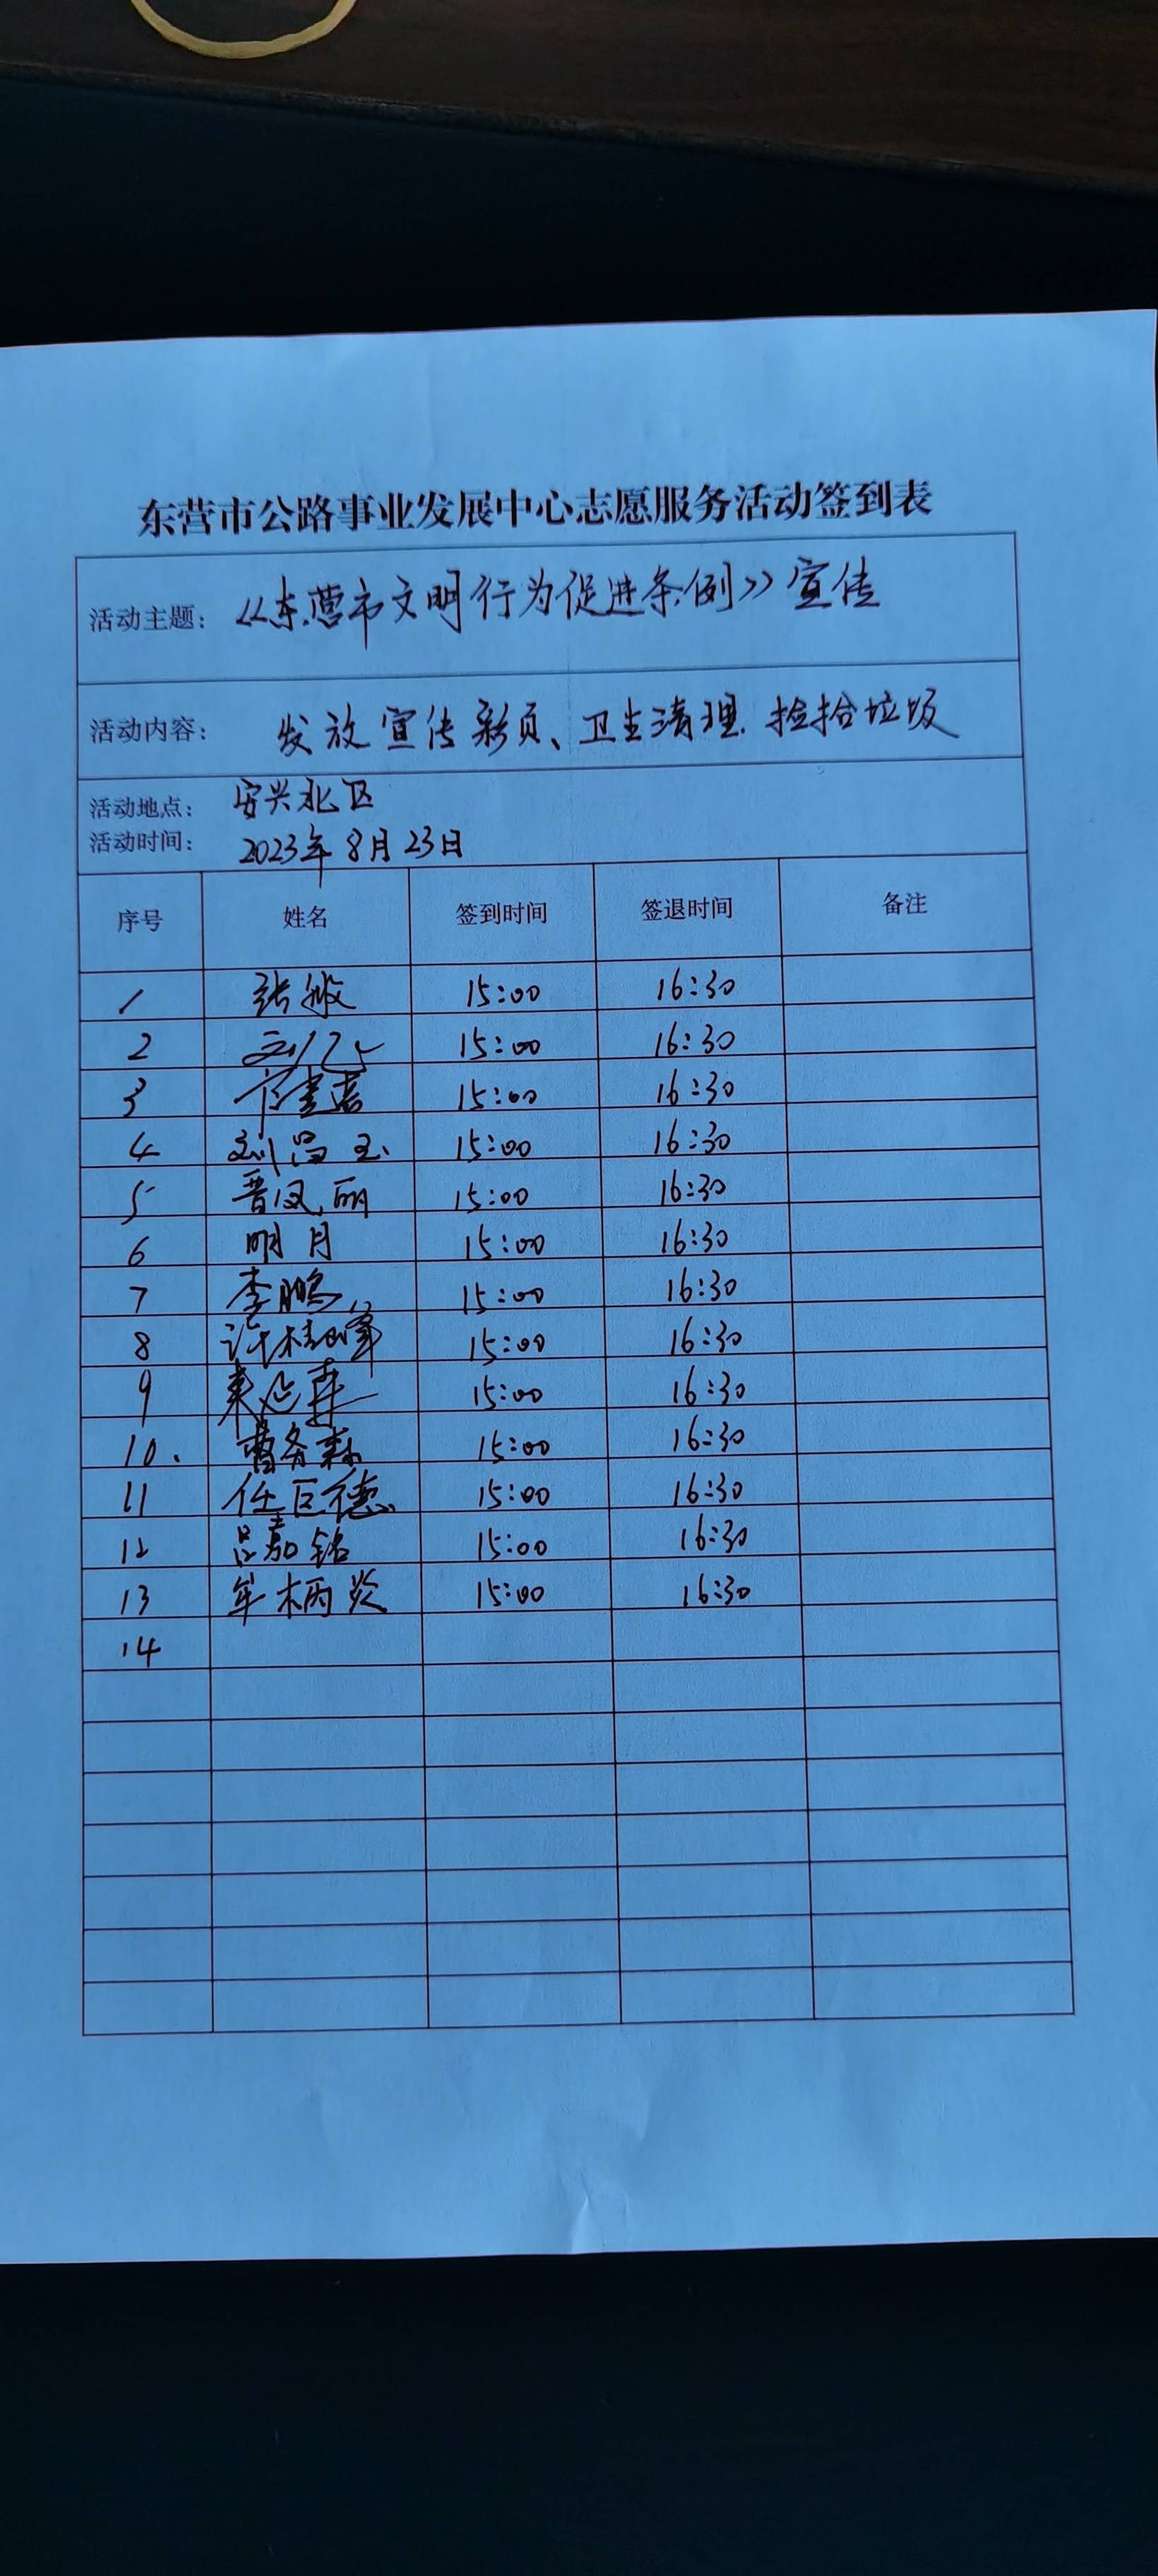 东营市公路事业发展中心志愿服务活动签到表
活动主题：《东营市文明行为促进条例》宣传
活动内容：发放宣传彩页、卫生清理.捡拾垃圾
活动地点：安兴北区
活动时间：2023年8月23日
序号 姓名 签到时间 签退时间 备注
1 张敏 15:00 16:30
2 15:00 16:30
3 15:00 16:30
4 刘昌玉 15:00 16:30
5 晋凤丽 15:00 16:30
6 明月 15:00 16:30
7 李鹏 15:00 16:30
8 许桂峰 15:00 16:30
9 15:00 16:30
10. 曹务森 15:00 16:30
11 任巨德 15:00 16:30
12 吕嘉铭 15:00 16:30
13 15:00 16:30
14